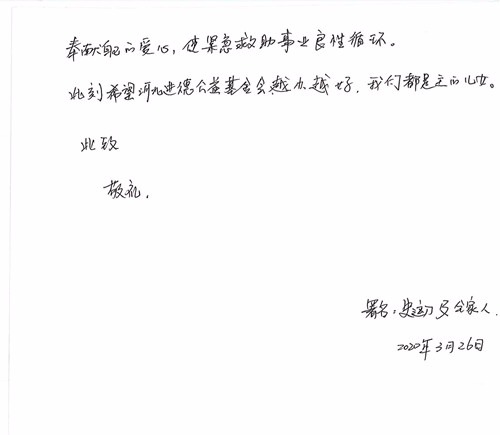 奉献自己的爱心，使紧急救助事业良性循环。
此刻希望河北进德公益基金会越办越好，我们都是主的儿女。
此致
敬礼.
署名：史运 及全家人.
2020年3月26日